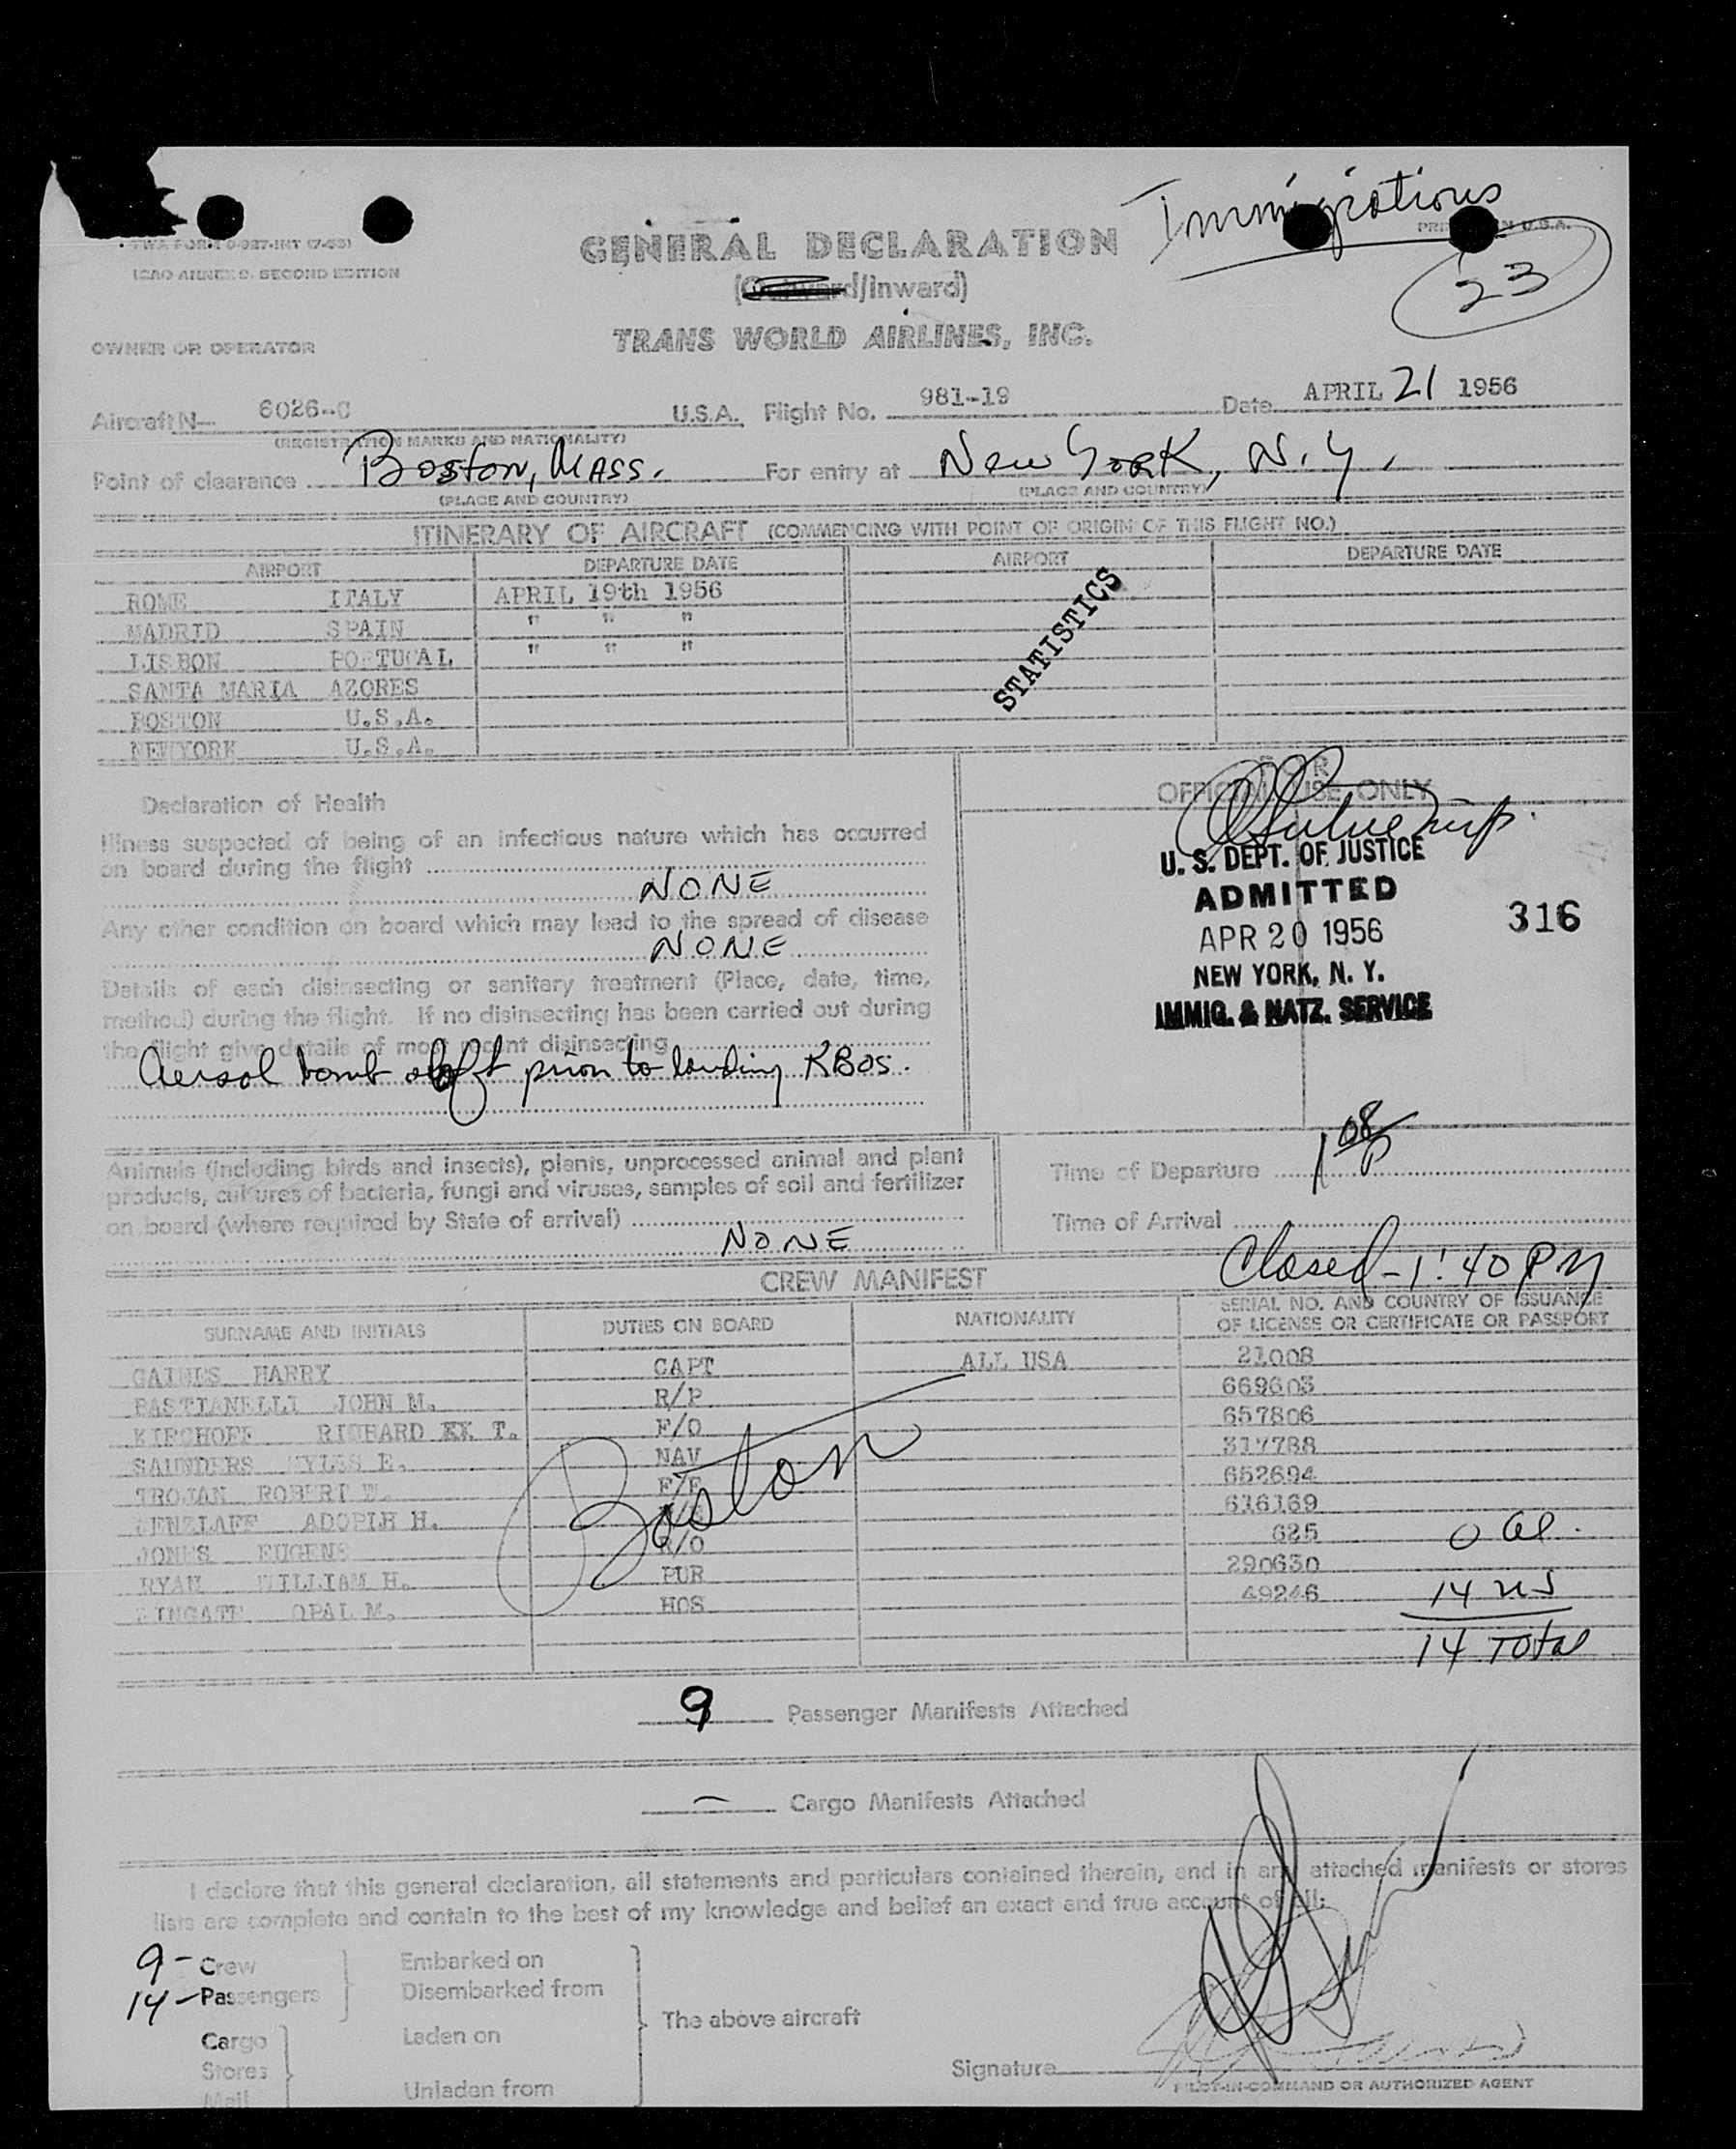 Immigrations
TWA FORM 0-927-INT (7-53)
ICAO ANNEX 9, SECOND EDITION
PRINTED IN U.S.A.
23
GENERAL DECLARATION
(Outward/Inward)
TRANS WORLD AIRLINES, INC.
OWNER OR OPERATOR
Aircraft N- 6026-C U.S.A. Flight No. 981-19 Date APRIL 21 1956
(REGISTRATION MARKS AND NATIONALITY)
Point of clearance Boston, Mass. For entry at New York, N.Y.
(PLACE AND COUNTRY) (PLACE AND COUNTRY)
ITINERARY OF AIRCRAFT (COMMENCING WITH POINT OF ORIGIN OF THIS FLIGHT NO.)
AIRPORT DEPARTURE DATE AIRPORT DEPARTURE DATE
ROME ITALY APRIL 19th 1956
MADRID SPAIN " " "
LISBON PORTUGAL " " "
SANTA MARIA AZORES
BOSTON U.S.A.
NEW YORK U.S.A.
STATISTICS
Declaration of Health
Illness suspected of being of an infectious nature which has occurred
on board during the flight
NONE
Any other condition on board which may lead to the spread of disease
NONE
Details of each disinsecting or sanitary treatment (Place, date, time,
method) during the flight. If no disinsecting has been carried out during
the flight give details of most recent disinsecting
Aersol bomb aloft prior to landing KBOS.
FOR
OFFICIAL USE ONLY
U. S. DEPT. OF JUSTICE
ADMITTED
APR 20 1956
316
NEW YORK, N. Y.
IMMIG. & NATZ. SERVICE
Animals (including birds and insects), plants, unprocessed animal and plant
products, cultures of bacteria, fungi and viruses, samples of soil and fertilizer
on board (where required by State of arrival)
NONE
Time of Departure 1 08 P
Time of Arrival
Closed - 1:40 PM
CREW MANIFEST
SURNAME AND INITIALS DUTIES ON BOARD NATIONALITY SERIAL NO. AND COUNTRY OF ISSUANCE
OF LICENSE OR CERTIFICATE OR PASSPORT
GAINES HARRY CAPT ALL USA 21008
BASTIANELLI JOHN M. R/P 669603
KIRCHOFF RICHARD XX T. F/O 657806
SAUNDERS MYLES E. NAV 317788
TROJAN ROBERT W. F/E 652694
ADOPLH H. 616169
JONES EUGENE R/O 625
RYAN WILLIAM H. PUR 290630
WINGATE OPAL M. HOS 49246
Boston
0 al.
14 US
14 Total
9 Passenger Manifests Attached
— Cargo Manifests Attached
I declare that this general declaration, all statements and particulars contained therein, and in any attached manifests or stores
lists are complete and contain to the best of my knowledge and belief an exact and true account of all:
9 - Crew Embarked on
14 - Passengers Disembarked from
The above aircraft
Cargo Laden on
Stores
Mail Unladen from
Signature
PILOT-IN-COMMAND OR AUTHORIZED AGENT